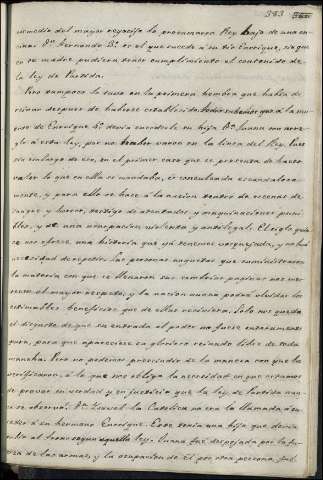 383
en medio del mayor regocijo lo proclamaron Rey bajo de una en-
cina. Dn. Fernando 3º. es el que sucede á su tio Enrique, sin que
en su madre pudiera tener cumplimiento el contenido de
la ley de Partida.
Pero tampoco lo tuvo en la primera hembra que habia de
reinar despues de haberse establecido. Todos saben que á la mu-
erte de Enrique 4º. devia sucederle su hija Dª. Juana con arre-
glo á esta ley, por no haber varon en la linea del Rey. Pues
sin embargo de eso, en el primer caso que se presenta de hacer
valer lo que en ella se mandaba, es conculcada escandalosa-
mente, y para ello se hace á la nacion teatro de escenas de
sangre y horror, testigo de atentados y maquinaciones puni-
bles, y de una usurpacion violenta y antilegal. El siglo quin-
ce nos ofrece una historia que ya tenemos bosquejada, y no hai
necesidad de repetir. Las personas augustas que suministraron
la materia con que se llenaron sus sombrias paginas nos me-
recen el mayor respeto, y la nacion nunca podrá olvidar los
estimables beneficios que de ellas recibiera. Solo nos queda
el disgusto de que su entrada al poder no fuese enteramente
pura, para que apareciese su glorioso reinado libre de toda
mancha. Pero no podemos prescindir de la manera con que la
verificaron, á lo que nos obliga la necesidad en que estamos
de provar en verdad y en justicia que la ley de Partida nun-
ca se observó. Dª. Isavel la Catolica no era la llamada á su-
ceder á su hermano Enrique. Este tenia una hija que devia
subir al trono segun aquella ley. Juana fué despojada por la fu-
erza de las armas, y la ocupacion de él por otra persona, fué